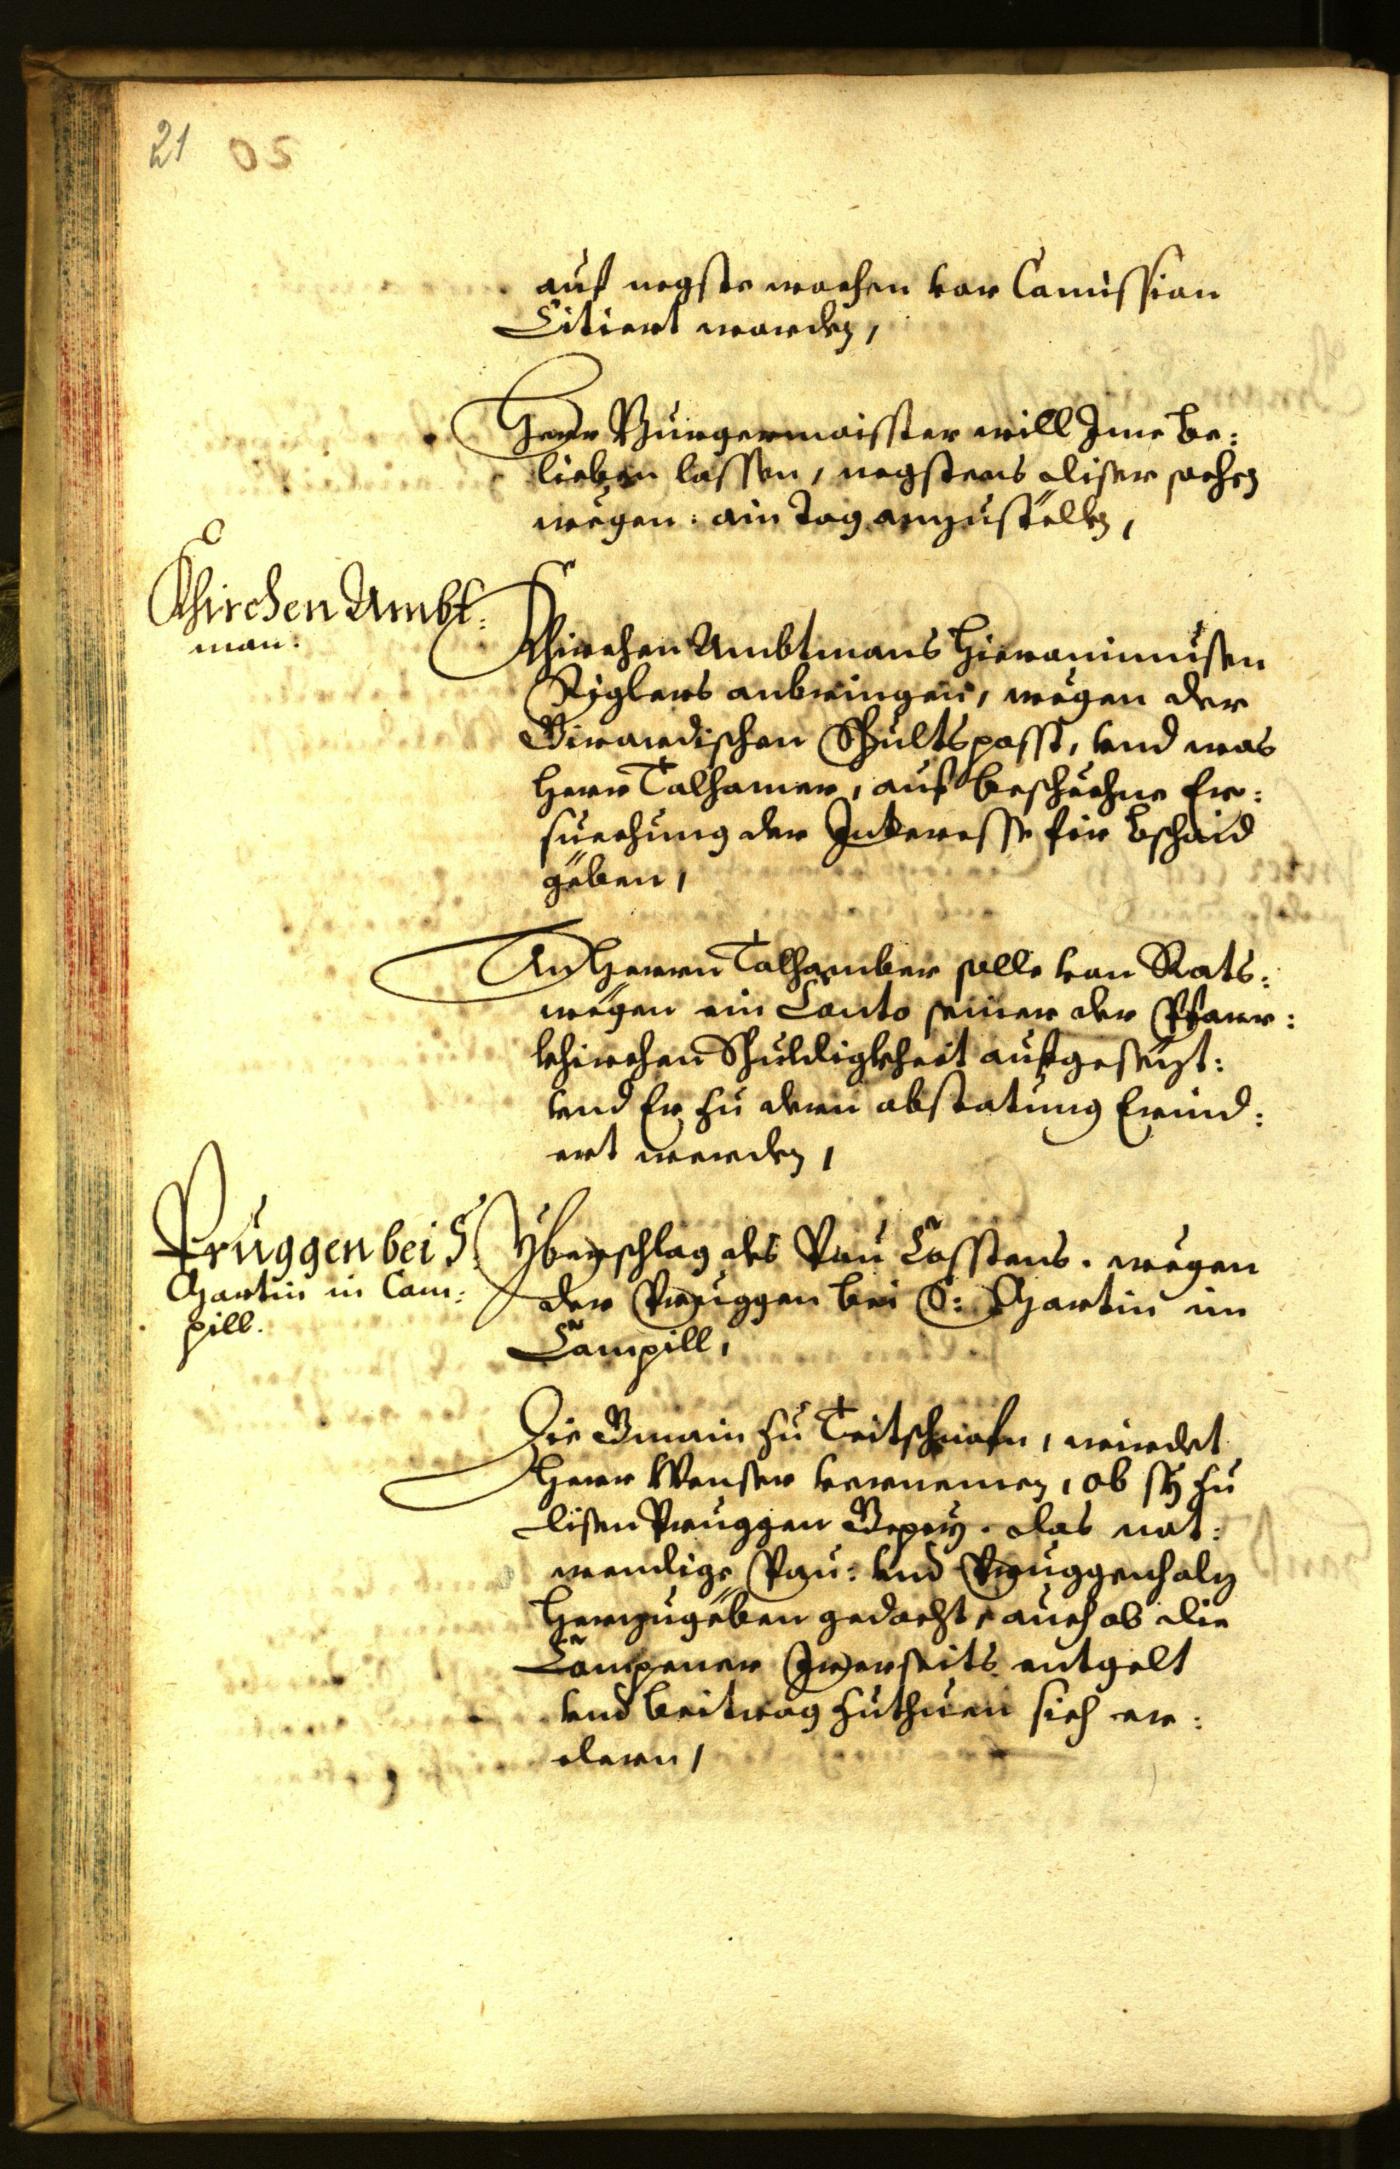 21 05
auf negste wochen vor Comission
Citiert worden,
Herr Burgermaisster will Ime be:
lieben lassen, negstens diser sachen
wegen: ain Tag anzustellen,
Khirchen Ambt:
man:
Khirchen Ambtmans Hieronimusen
Riglers anbringen, wegen der
Girardischen Schultsposst, vnd was
Herr Talhamer, auf beschechne Er:
suechung der Interesse fir bschaid
geben,
An Herrn Talhamber solle von Rats:
wegen ein Conto seiner der Pfarr:
khirchen Schuldigkheit aufgesezt:
vnd Er zu deren abstatung Erind:
ert werden,
Pruggen bei S.
Martin in Cam:
pill.
Yberschlag des Pau Cosstens. wegen
der Pruggen bei S: Martin im
Campill,
Die Gmain zu Teitschnofn, wirdet
Herr Wenser vernemen, ob sy zu
disen Pruggen Gepey. das not:
wendige Pau: vnd Pruggenholz
herzugeben gedacht, auch ob die
Campener Irerseits entgelt
vnd beitrag zuthuen sich er:
clern,